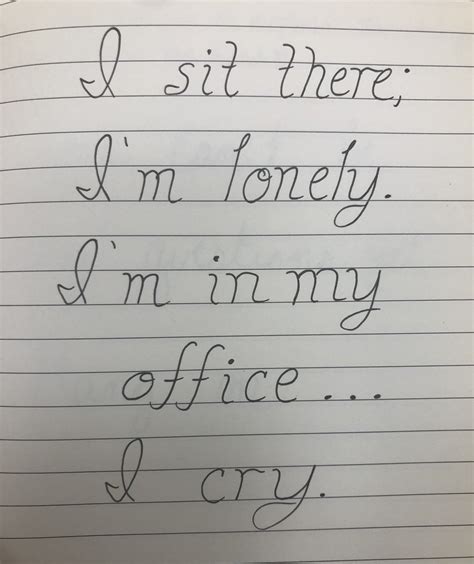 I sit there;
I'm lonely.
I'm in my
office...
I cry.